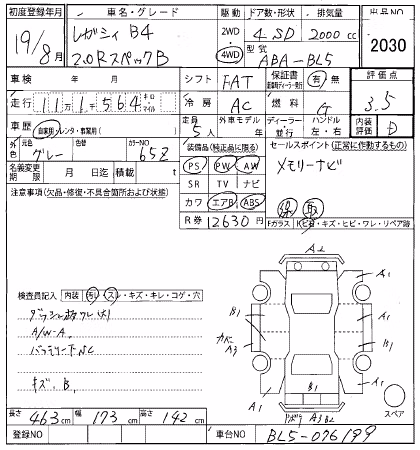 初度登録年月
19/8月
車名・グレード
レガシィ B4
2.0RスペックB
駆動
2WD
4WD
ドア数・形状
4 SD
排気量
2000 cc
型式
ABA-BL5
出品NO
2030
車検 年 月
シフト FAT
保証書 有・無
評価点
3.5
走行 11万1千564 キロ マイル
冷房 AC
燃料 G
車歴 自家用・レンタ・事業用( )
定員 5人
外車モデル
ディーラー・並行
ハンドル 左・右
内装評価 D
外色
元色 グレー
色替
カラーNO 65Z
名義変更期限 月 日迄
積載 t
装備品(純正品に限る)
PS PW AW
SR TV ナビ
カワ エアB ABS
R券 12630円
セールスポイント(正常に作動するもの)
メモリーナビ
保 取
注意事項(欠品・修復・不具合箇所および状態)
Fガラス キズ・ヒビ・ワレ・リペア跡
検査員記入 内装 汚れ・スレ・キズ・キレ・コゲ・穴
A/W-A
バッテリー下NC
キズ、B、
A2
A1
A1
B1
B1
A3
A1
A1
A1
B1
A3B2
スペア
長さ 463cm 幅 173cm 高さ 142cm
登録NO
車台NO BL5-076199